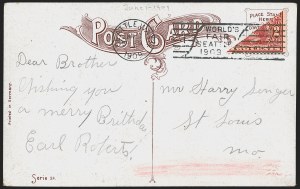 June 1 1909
POST CARD
PLACE STAMP
HERE
WORLD'S
FAIR
SEATTLE
1909
Dear Brother
Wishing you
a merry Birthday
Earl Roberts
Mr Harry Songer
St Louis
Mo
Printed in Germany
Serie